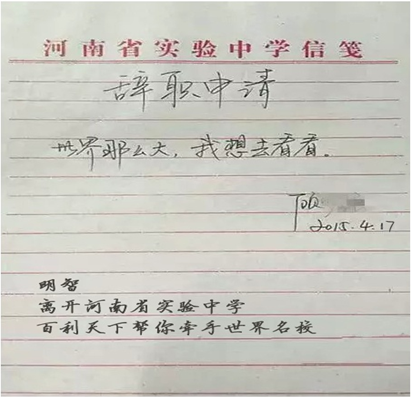 河南省实验中学信笺
辞职申请
世界那么大，我想去看看。
顾
2015.4.17
明智
离开河南省实验中学
百利天下帮你牵手世界名校